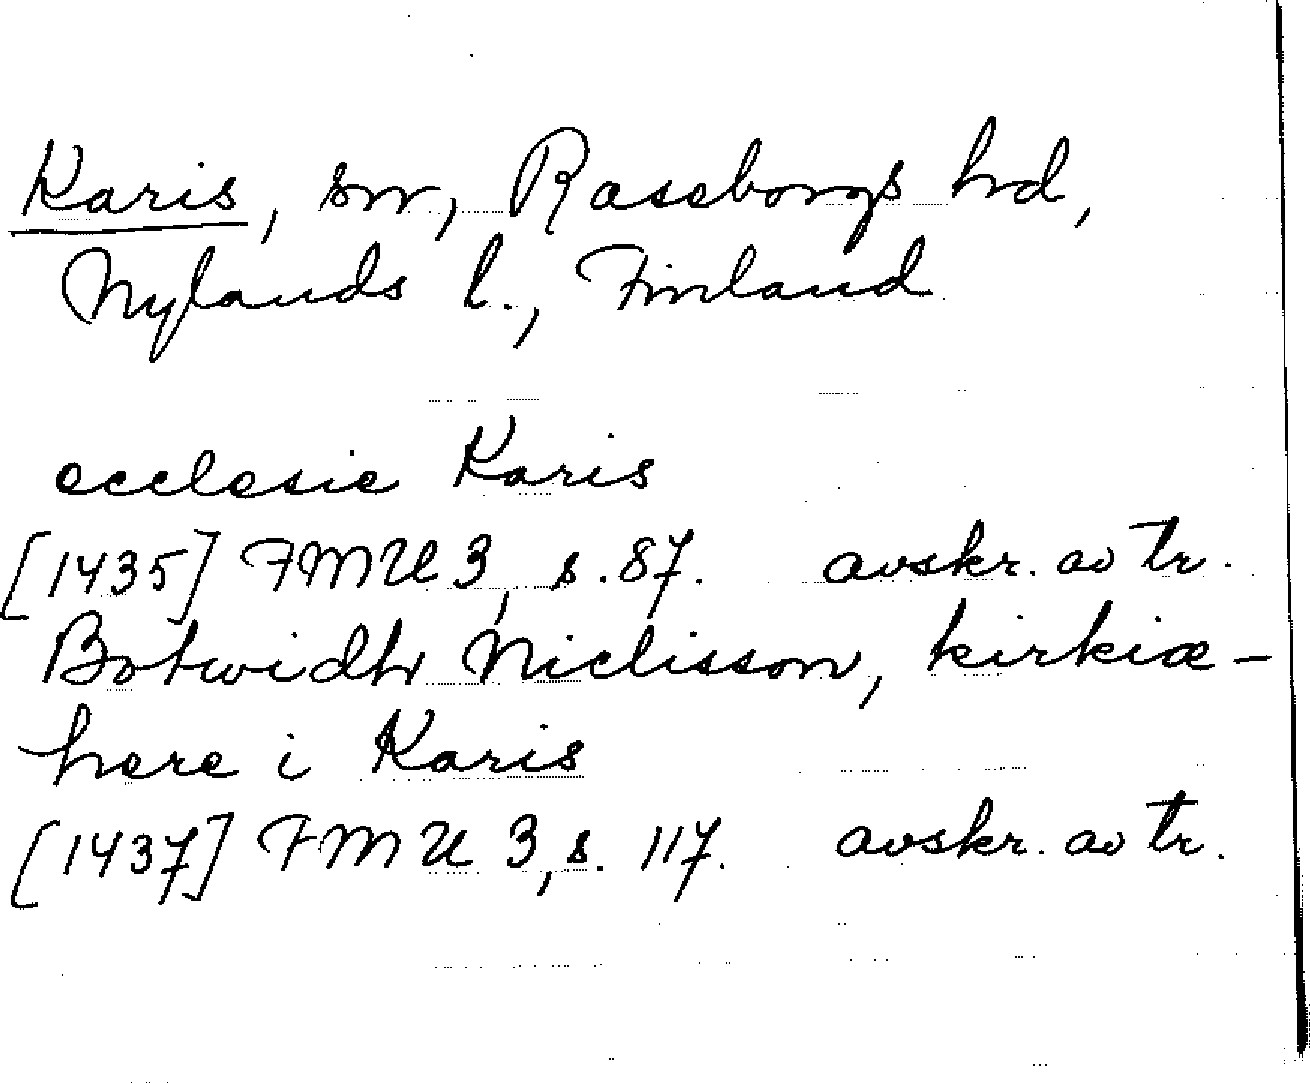 Karis, sn, Raseborgs hd,
Nylands l., Finland
ecclesie Karis
[1435] FMU 3, s. 87. avskr. av tr.
Botwidh Niclisson, kirkiæ-
here i Karis
[1437] FMU 3, s. 117. avskr. av tr.